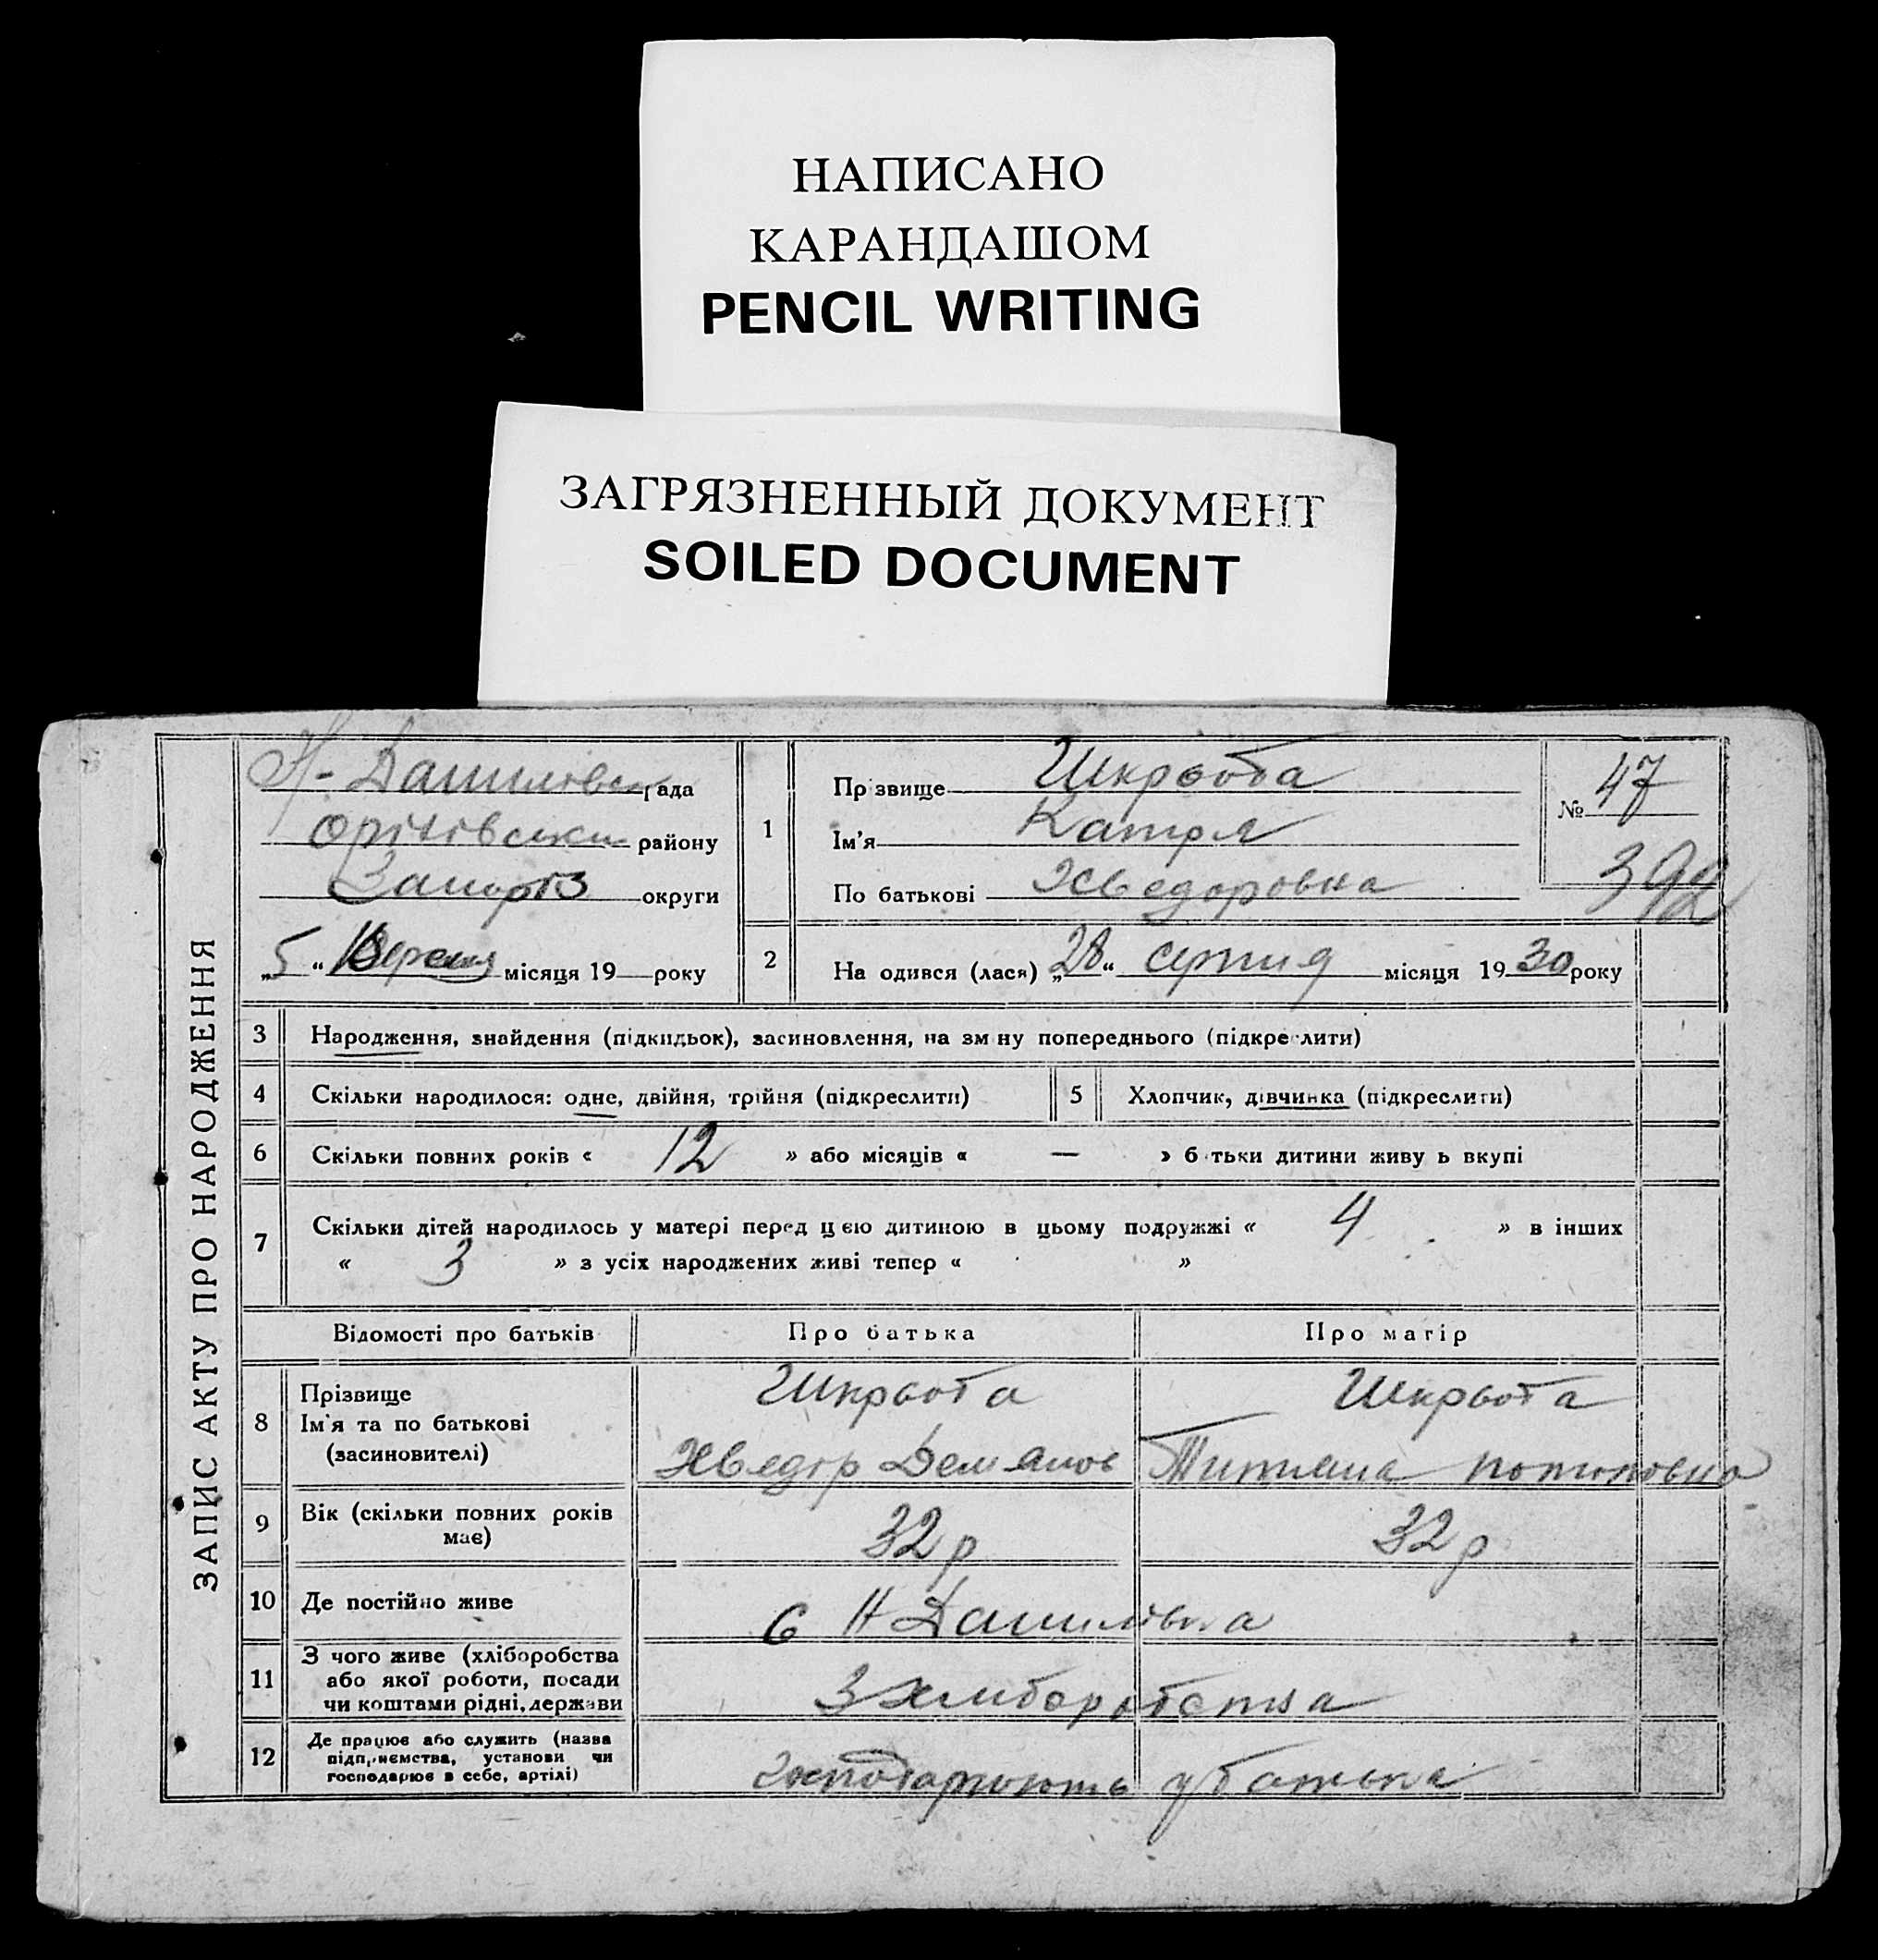 НАПИСАНО
КАРАНДАШОМ
PENCIL WRITING
ЗАГРЯЗНЕННЫЙ ДОКУМЕНТ
SOILED DOCUMENT
ЗАПИС АКТУ ПРО НАРОДЖЕННЯ
Н-Данилівськ рада
Оріхівськ району
Запоріз округи
„5“ Вересня місяця 19 року
1
Прізвище Шкрьоба
Ім'я Катря
По батькові Хведоровна
№ 47
392
2
На одився (лася) „28“ серпня місяця 1930 року
3 Народження, знайдення (підкидьок), засиновлення, на зм ну попереднього (підкреслити)
4 Скільки народилося: одне, двійня, трійня (підкреслити) 5 Хлопчик, дівчинка (підкреслити)
6 Скільки повних років « 12 » або місяців « — » б тьки дитини живу ь вкупі
7 Скільки дітей народилось у матері перед цією дитиною в цьому подружжі « 4 » в інших
« 3 » з усіх народжених живі тепер « »
Відомості про батьків Про батька Про матір
8 Прізвище
Ім'я та по батькові
(засиновителі)
Шкрьоба Шкрьоба
Хведір Демянов Титяна
9 Вік (скільки повних років
має)
32 р 32 р
10 Де постійно живе С Н Данилівка
11 З чого живе (хліборобства
або якої роботи, посади
чи коштами рідні, держави
З хліборобства
12 Де працює або служить (назва
підприємства, установи чи
господарює в себе, артілі)
господарюють у батька